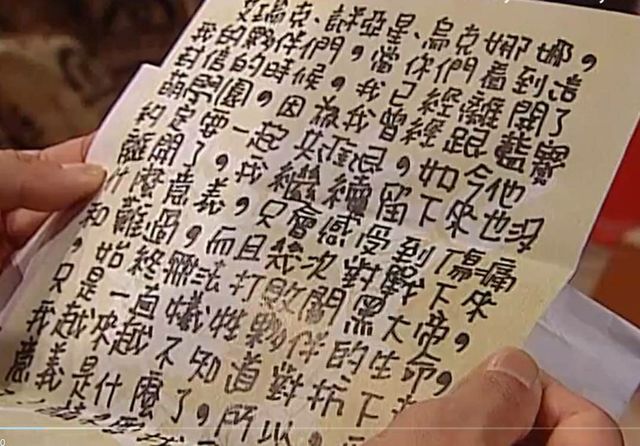 艾瑞克、許亞星、烏克娜娜，
我的夥伴們，當你們看到這
封信的時候，我已經離開了
萌學園，因為我曾經跟藍寶
約定要一起共進退，如今他
離開了，我繼續留下來也沒
什麼意義，只會感受到傷痛
和難過，而且幾次對戰下來
，始終無法打敗闇黑大帝，
只是一直犧牲夥伴的生命，
我越來越不知道對抗下
意義是什麼了，所以，